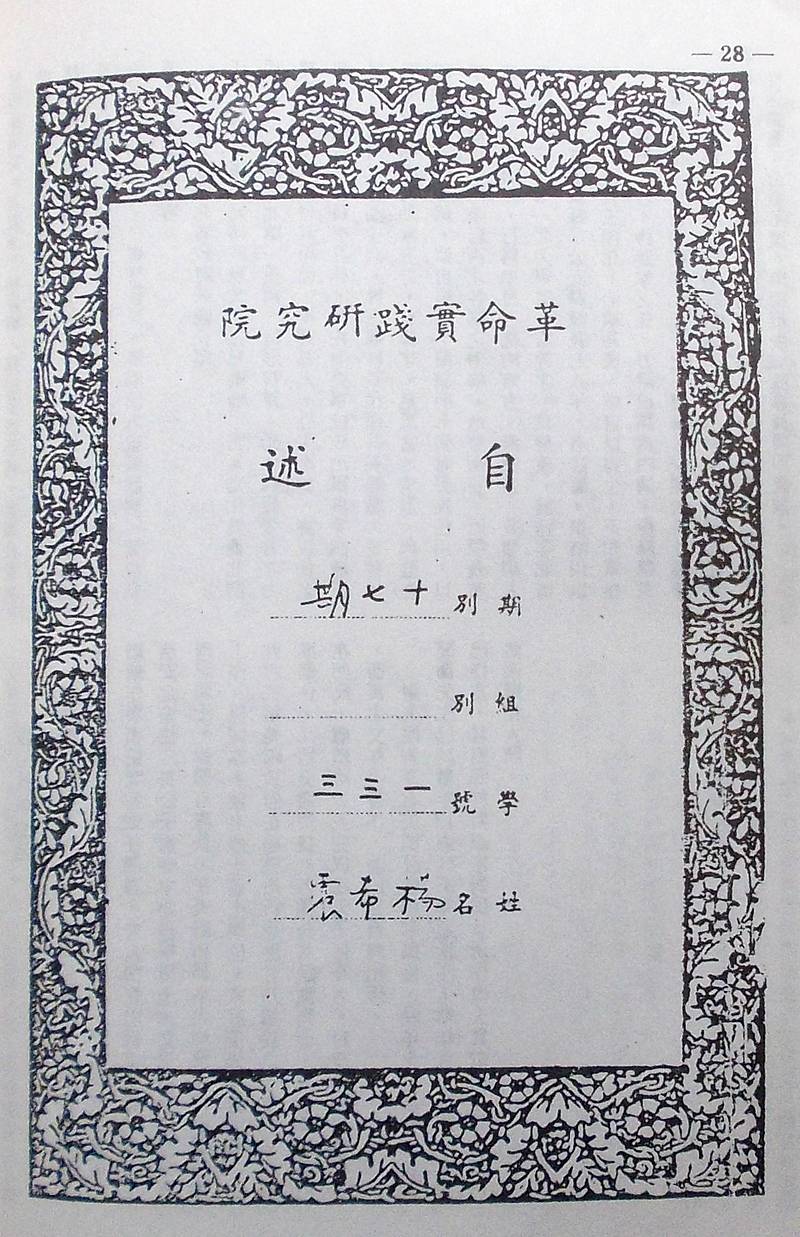 — 28 —
革命實踐研究院
自述
期別 十七期
組別
學號 一三三
姓名 楊希震